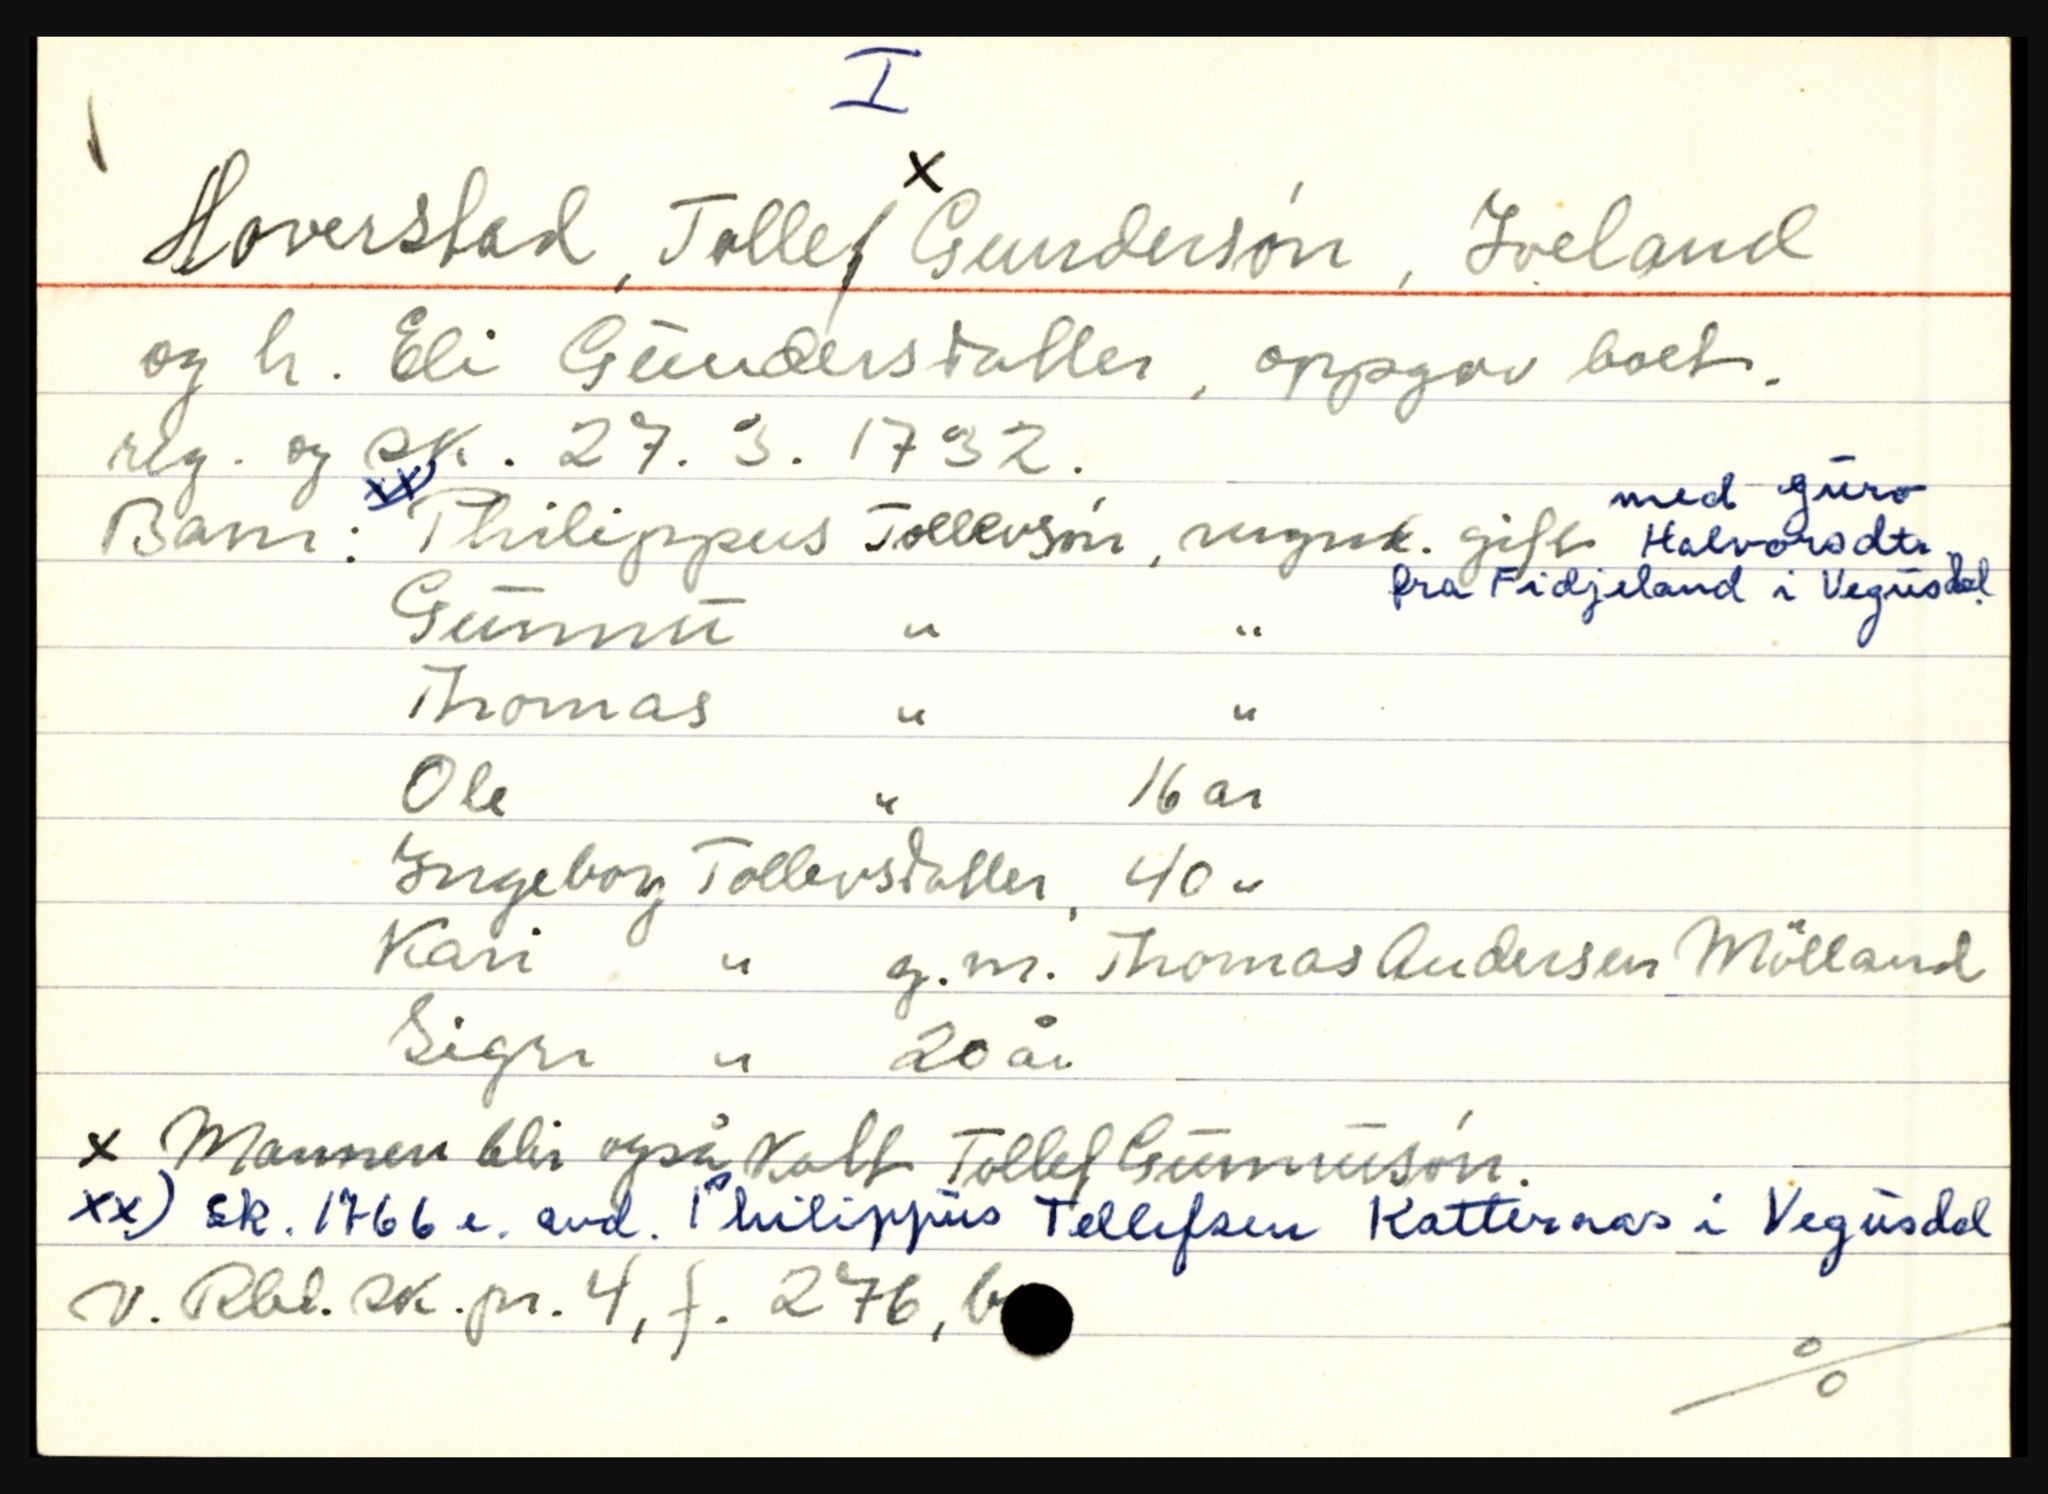 I
x
Hoverstad, Tollef Gundersón, Iveland
og h. Eli Gundersdatter, oppgav boet.
reg. og sk. 27. 3. 1732.
xx)
med Guro
Barn: Philippus Tollevsón, gift Halvorsdtr.
fra Fidjeland i Vegusdal.
Gunnu " "
Thomas " "
Ole " 16 år
Ingeborg Tollevsdatter, 40 "
Kari " g.m. Thomas Andersen Mölland
Sigri " 20 år
x Mannen blir også kalt Tollef Gunnusón.
xx) Sk. 1766 e. avd. Philippus Tellefsen Katteraas i Vegusdal
v. Rbd. sk. pr. 4, f. 276, b
%